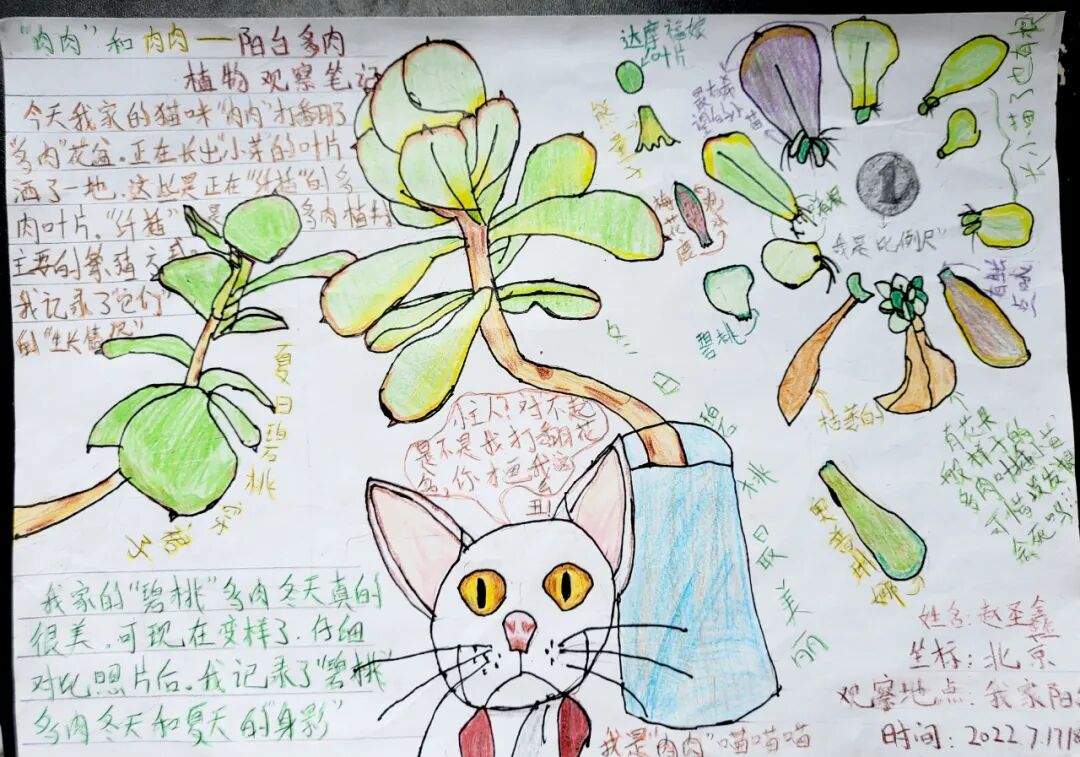 "肉肉"和肉肉——阳台多肉
植物观察笔记
今天我家的猫咪"肉肉"打翻了
"多肉"花盆.正在长出"小芽"的叶片
洒了一地.这些是正在"扦插"的多
肉叶片."扦插" 是 多肉植物
主要的繁殖方式
我记录了"它们"
的"生长情况"
达摩福娘
叶片
我是"比例尺"
1
长小苗了也有根
碧桃
枯萎的
有花果
般样子的
多肉叶插小苗
可惜没发根
会死吗
奥普琳娜
夏日碧桃
冬日碧桃最美丽
主人!对不起
是不是我打翻花
盆,你才画我这
丑!
我家的"碧桃"多肉冬天真的
很美.可现在变样了.仔细
对比照片后.我记录了"碧桃"
多肉冬天和夏天的"身影"
我是"肉肉"喵喵喵
姓名:赵圣鑫
坐标:北京
观察地点:我家阳
时间:2022.7.17